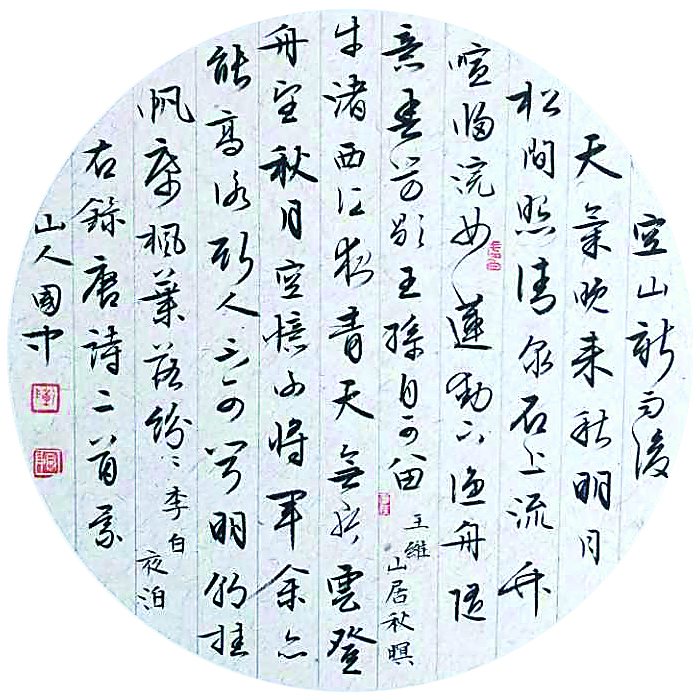 空山新雨後
天氣晚来秋明月
松間照清泉石上流竹
喧归浣女蓮動下漁舟随
意春芳歇王孫自可留
王維
山居秋暝
牛渚西江夜青天無片雲登
舟望秋月空憶謝將軍余亦
能高詠斯人不可聞明朝挂
帆席楓葉落紛〻
李白
夜泊
右錄唐詩二首
山人國